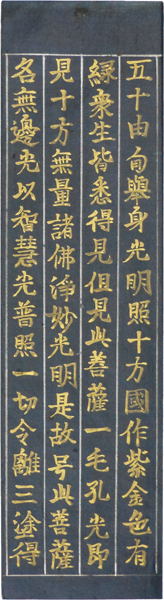 五十由旬舉身光明照十方國作紫金色有
緣衆生皆悉得見但見此菩薩一毛孔光即
見十方無量諸佛淨妙光明是故号此菩薩
名無邊光以智慧光普照一切令離三塗得